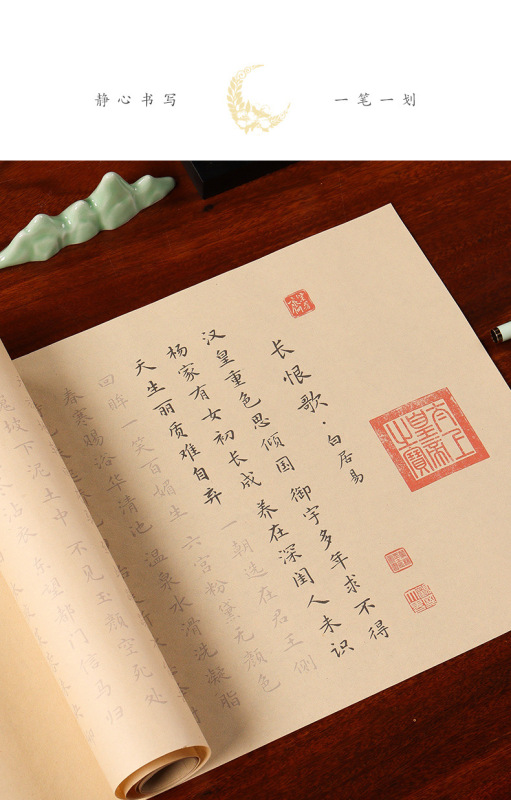 静心书写
一笔一划
长恨歌·白居易
汉皇重色思倾国 御宇多年求不得
杨家有女初长成 养在深闺人未识
天生丽质难自弃 一朝选在君王侧
回眸一笑百媚生 六宫粉黛无颜色
春寒赐浴华清池 温泉水滑洗凝脂
坡下泥土中 不见玉颜空死处
沾衣 东望都门信马归
太上皇帝之寶